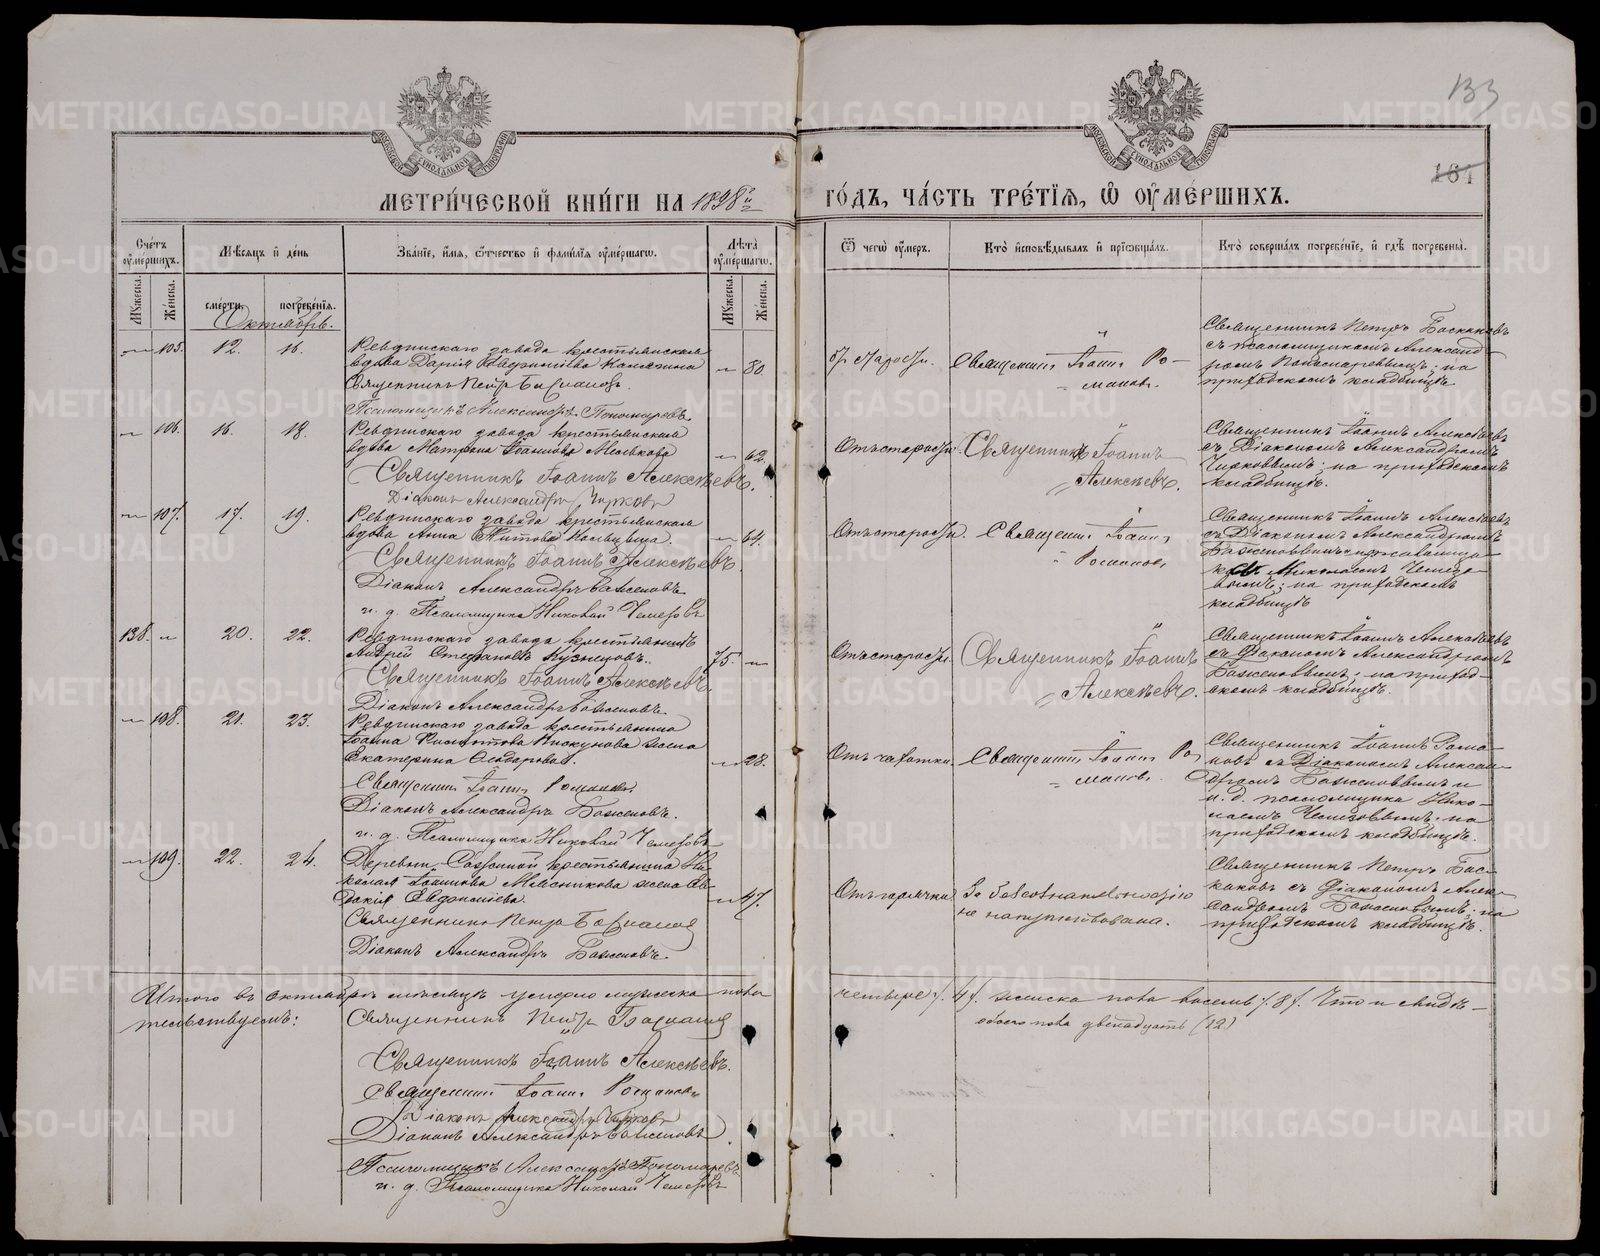 133
181
МЕТРИ́ЧЕСКОЙ КНИ́ГИ НА 1898й ГО́ДЪ, ЧА́СТЬ ТРЕ́ТІѦ, Ѡ҆ ОУ҆МЕ́РШИХЪ.
Сче́тъ оу҆ме́ршихъ.
Мѣ́сѧцъ и҆ де́нь
Зва́нїе, и҆́мѧ, ѻ҆́тчество и҆ фами́лїѧ оу҆ме́ршагѡ.
Лѣ́та оу҆ме́ршагѡ.
Ѿ чегѡ̀ оу҆́меръ.
Кто̀ и҆сповѣ́дывалъ и҆ прїѡбща́лъ.
Кто̀ соверша́лъ погребе́нїе, и҆ гдѣ̀ погребены̀.
Мꙋ́жеска.
Же́нска.
сме́рти.
погребе́нїѧ.
Мꙋ́жеска.
Же́нска.
Октябрь.
105. 12. 16.
Ревдинскаго завода крестьянская
вдова Дарія
80.
Священникъ Петръ
Псаломщикъ Александръ Пономаревъ
От старости.
Священникъ Іоаннъ Ро-
мановъ.
Священникъ Петръ
съ псаломщикомъ Александ-
ромъ Пономаревымъ; на
приходскомъ кладбищѣ.
106. 16. 18.
Ревдинскаго завода крестьянская
вдова Матрона
62.
Священникъ Іоаннъ Алексѣевъ.
Діаконъ Александръ Чирковъ
Отъ старости.
Священникъ Іоаннъ
Алексѣевъ.
Священникъ Іоаннъ Алексѣевъ
съ Діакономъ Александромъ
Чирковымъ; на приходскомъ
кладбищѣ.
107. 17. 19.
Ревдинскаго завода крестьянская
вдова Анна Титова
64.
Священникъ Іоаннъ Алексѣевъ.
Діаконъ Александръ Баженовъ.
и. д. Псаломщика Николай Чемезовъ
Отъ старости.
Священникъ Іоаннъ
Романовъ
Священникъ Іоаннъ Алексѣевъ
съ Діакономъ Александромъ
Баженовымъ и псаломщи-
комъ Николаемъ Чемезо-
вымъ; на приходскомъ
кладбищѣ
138. 20. 22.
Ревдинскаго завода крестьянинъ
Андрей Стефановъ Кузнецовъ.
75.
Священникъ Іоаннъ Алексѣевъ.
Діаконъ Александръ Баженовъ.
Отъ старости.
Священникъ Іоаннъ
Алексѣевъ.
Священникъ Іоаннъ Алексѣевъ
съ Діакономъ Александромъ
Баженовымъ; на приход-
скомъ кладбищѣ.
108. 21. 23.
Ревдинскаго завода крестьянина
Іоанна Пискунова жена
Екатерина Ѳеодорова.
28.
Священникъ Іоаннъ Романовъ
Діаконъ Александръ Баженовъ.
и. д. Псаломщика Николай Чемезовъ
Отъ чахотки.
Священникъ Іоаннъ Ро-
мановъ.
Священникъ Іоаннъ Рома-
новъ съ Діакономъ Алексан-
дромъ Баженовымъ и
и. д. псаломщика Нико-
лаемъ Чемезовымъ; на
приходскомъ кладбищѣ.
109. 22. 24.
Деревни крестьянина Ни-
колая Іоаннова Мясникова жена Ев-
докія Евдокимова.
47.
Священникъ Петръ
Діаконъ Александръ Баженовъ.
Отъ горячки.
За
не напутствована.
Священникъ Петръ
съ Діакономъ Алек-
сандромъ Баженовымъ; на
приходскомъ кладбищѣ.
Итого въ октябрѣ мѣсяцѣ умерло мужеска пола четыре /. 4 /. женска пола восемь /. 8 /. Что и свидѣ-
тельствуемъ:
обоего пола двенадцать (12)
Священникъ Петръ
Священникъ Іоаннъ Алексѣевъ.
Священникъ Іоаннъ Романовъ
Діаконъ Александръ Чирковъ
Діаконъ Александръ Баженовъ.
Псаломщикъ Александръ Пономаревъ
и. д. Псаломщика Николай Чемезовъ
METRIKI.GASO-URAL.RU